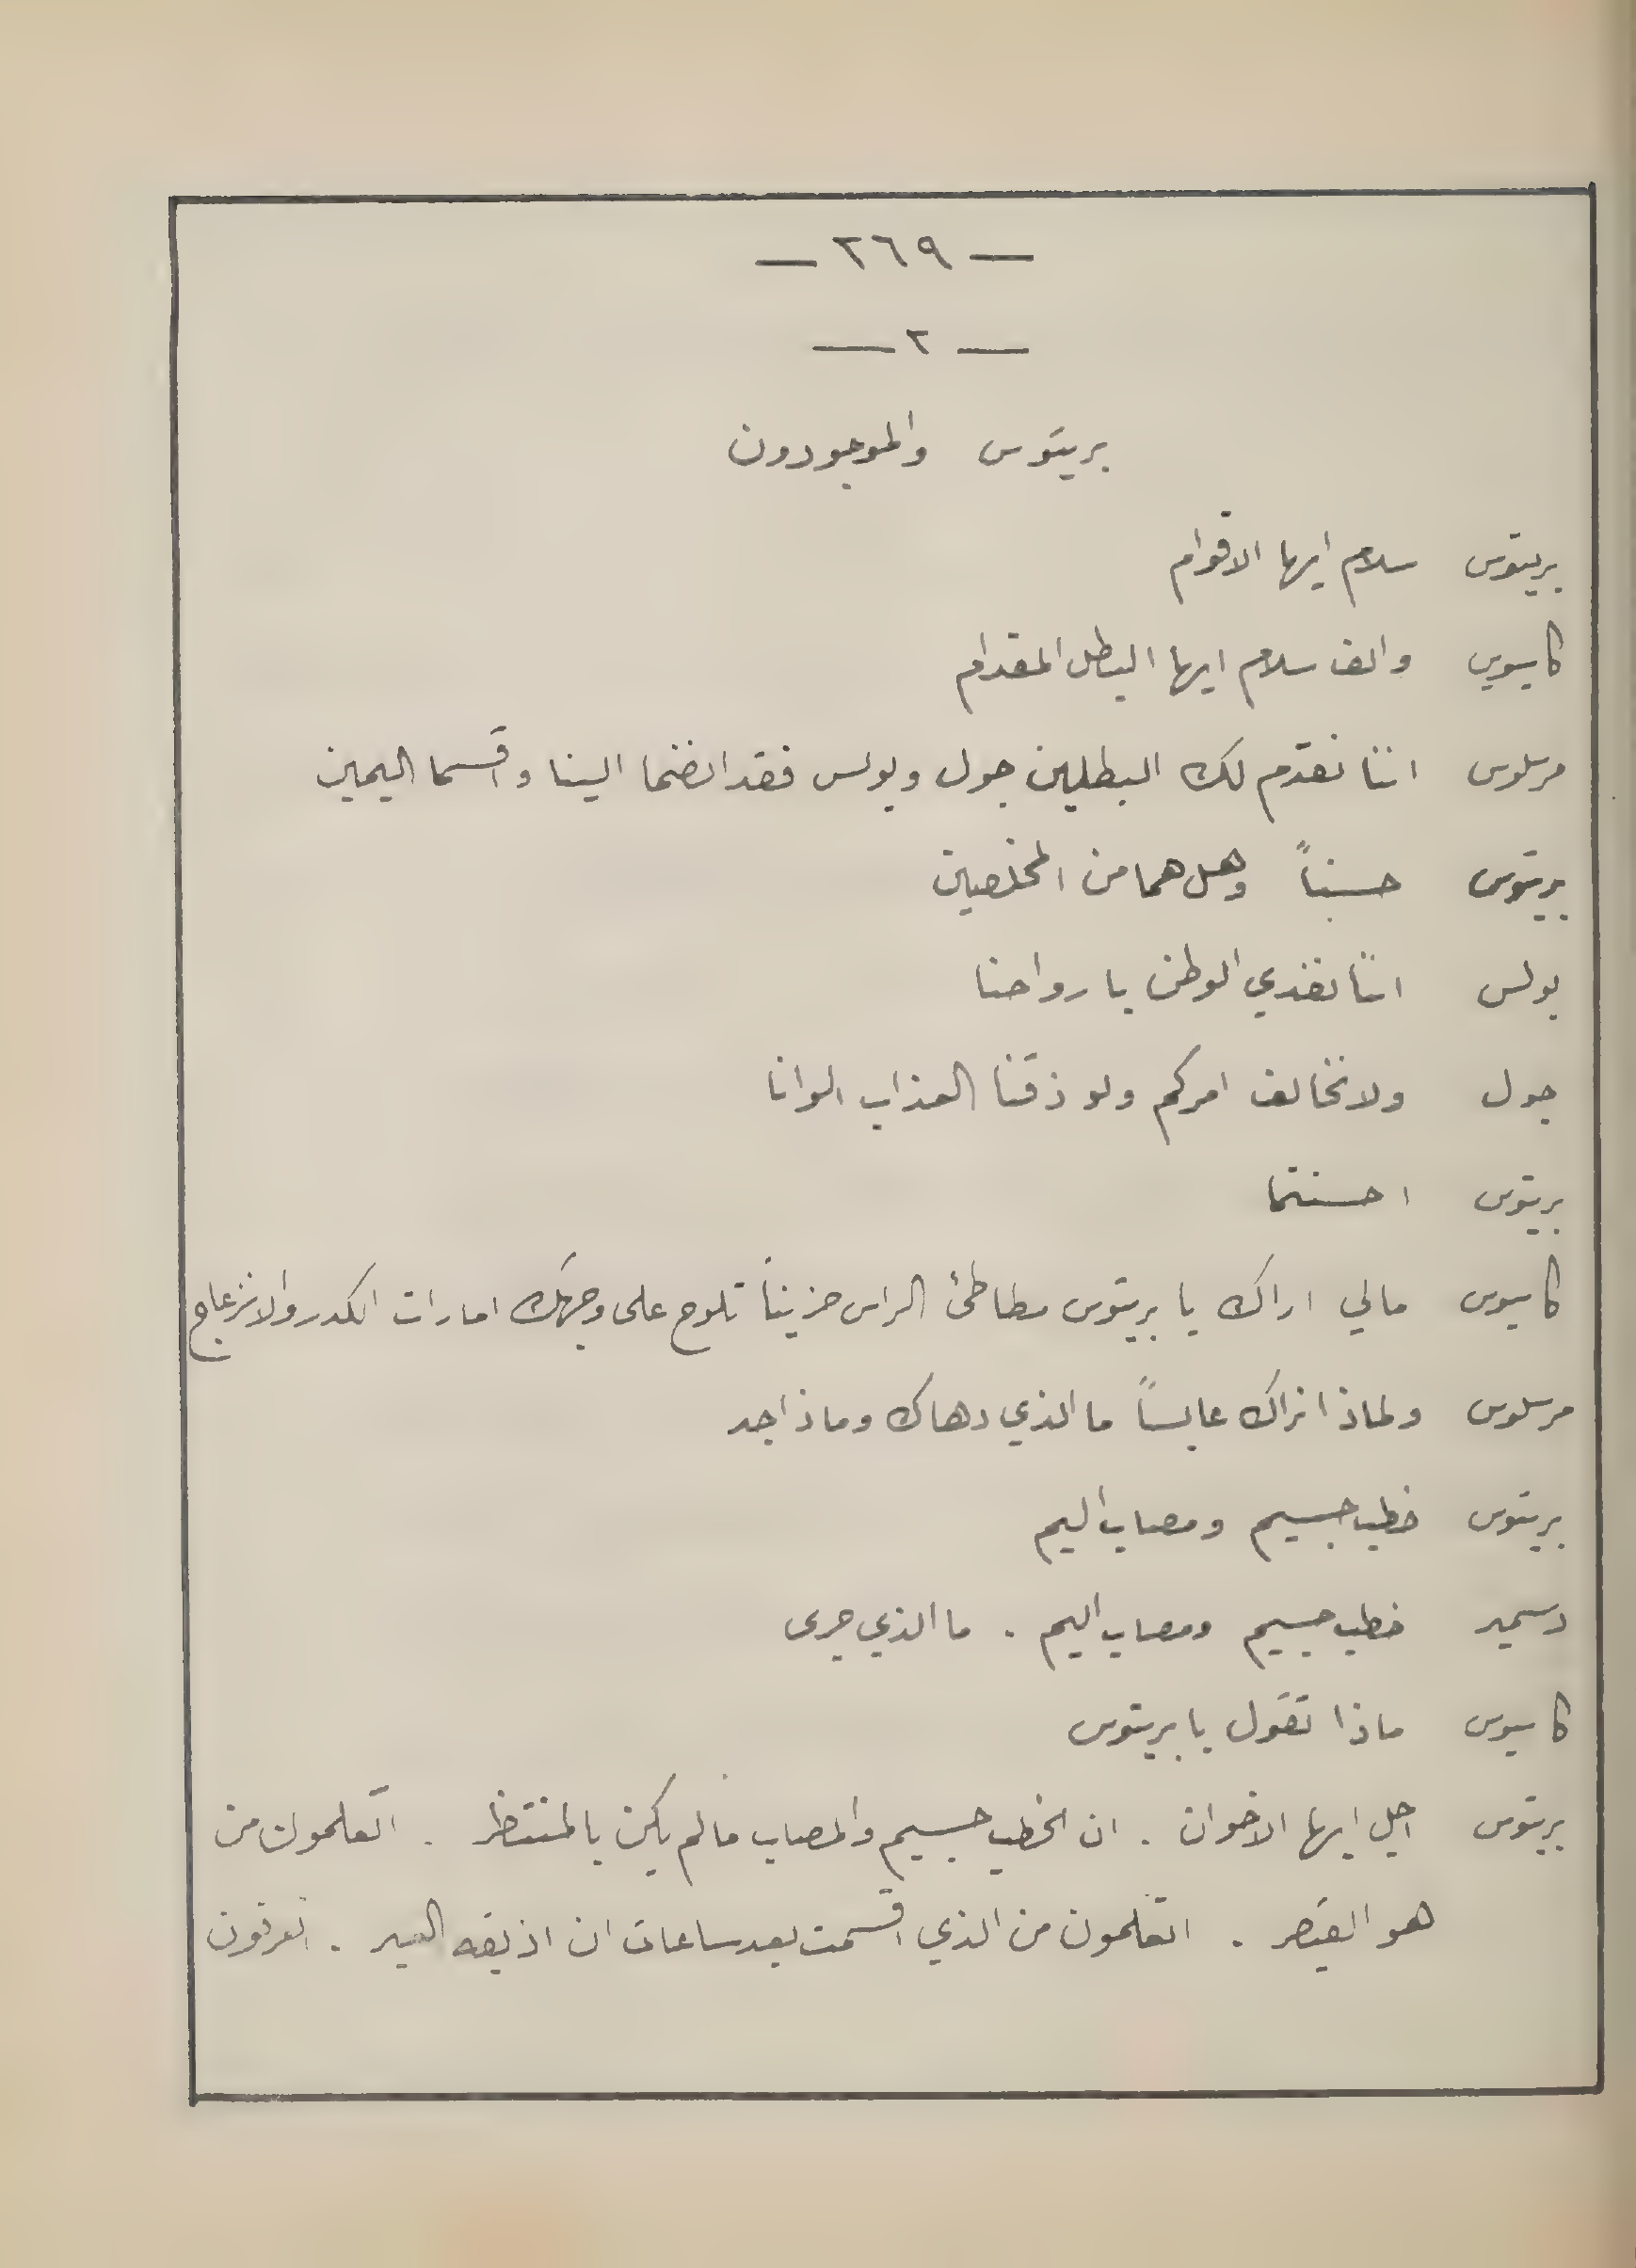 — ٢٦٩ —
— ٢ —
بريتوس والموجودون
بريتوس سلام ايها الاقوام
كاسيوس والف سلام ايها البطل المقدام
مرسلوس اننا نقدم لك البطلين جول وبولس فقد انضما الينا واقسما اليمين
بريتوس حسناً وهل هما من المخلصين
بولس اننا نفدي الوطن بارواحنا
جول ولا نخالف امركم ولو ذقنا العذاب الوانا
بريتوس احسنتما
كاسيوس مالي اراك يا بريتوس مطاطئ الراس حزيناً تلوح على وجهك امارات الكدر والانزعاج
مرسلوس ولماذا نراك عابساً ما الذي دهاك وماذا جد
بريتوس خطب جسيم ومصاب اليم
دسمير خطب جسيم ومصاب اليم . ما الذي جرى
كاسيوس ماذا تقول يا بريتوس
بريتوس اجل ايها الاخوان . ان الخطب جسيم والمصاب ما لم يكن بالمنتظر . اتعلمون من
هو القيصر . اتعلمون من الذي اقسمت بعد ساعات ان اذيقه . اتعرفون